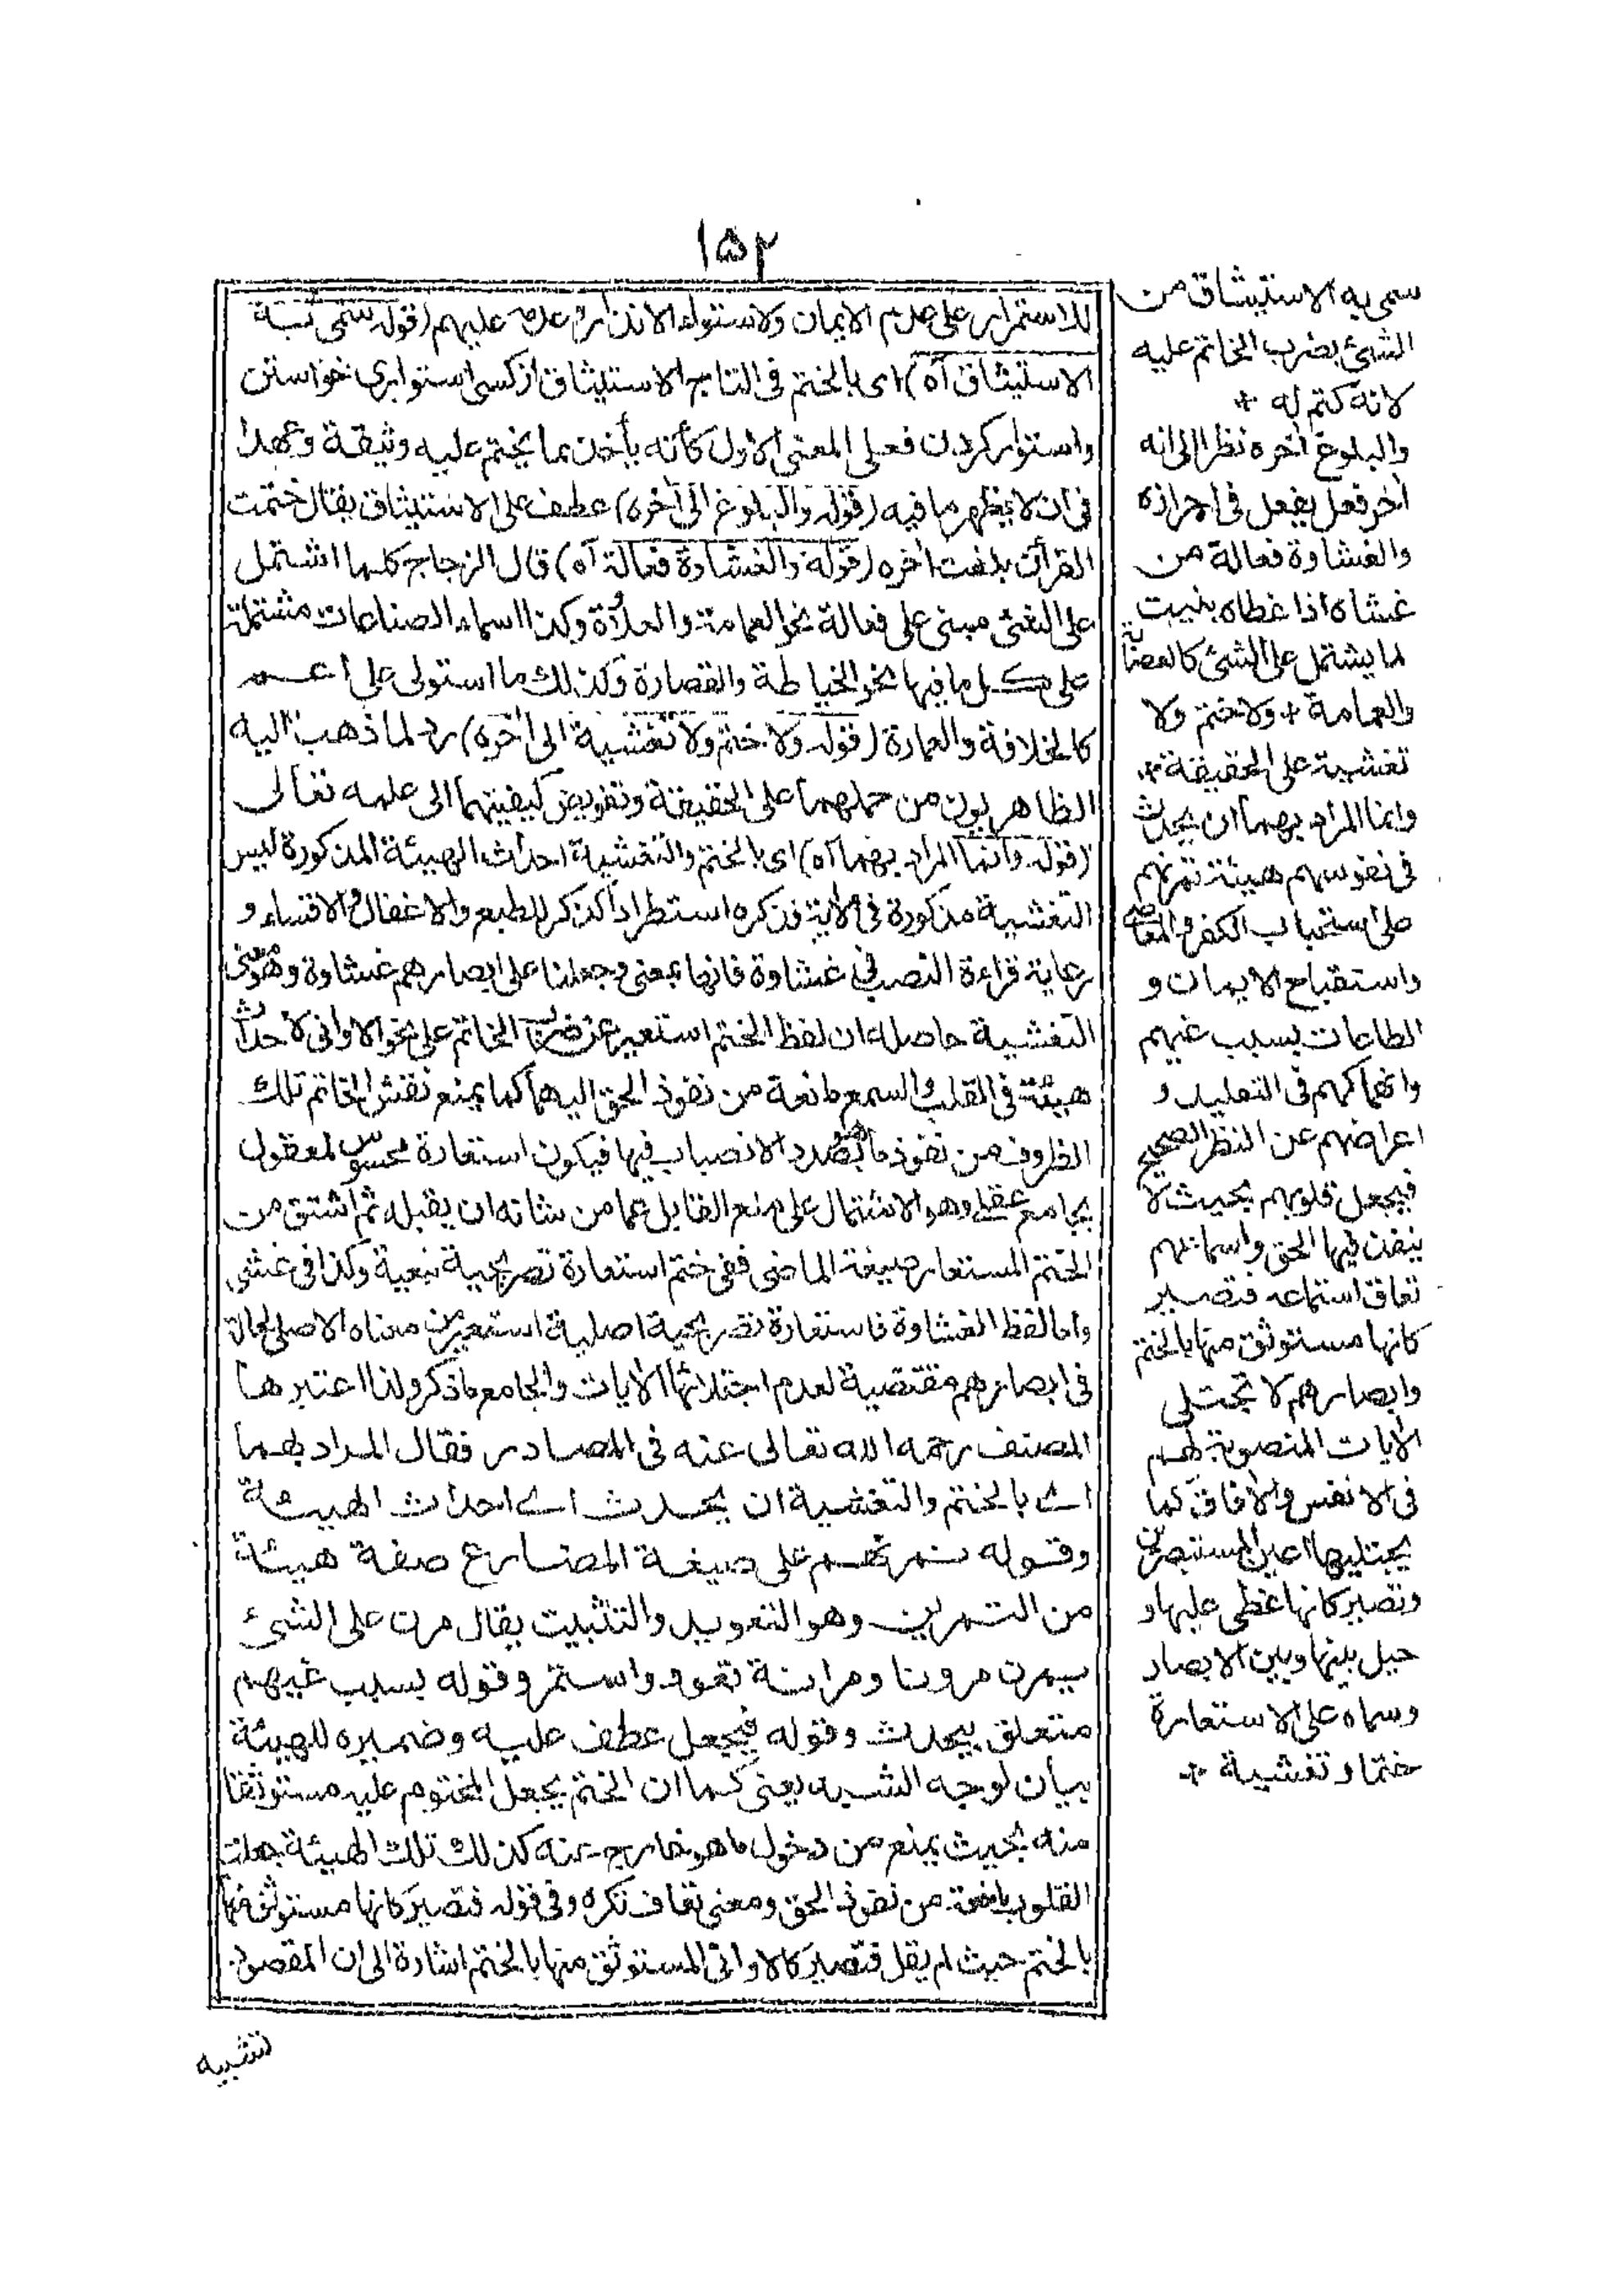 ١٥٢
للاستمرار على عدم الايمان ولاستواء الانذار وعدمه عليهم (قوله سمى به
الاستيثاق آه) اى بالختم فى التاج الاستيثاق از كسى استوارى خواستن
واستوار كردن فعلى المعنى الاول كأنه يأخذ مما يختم عليه وثيقة وعهدا
فى ان لا يظهر ما فيه (قوله والبلوغ الى آخره) عطف على الاستيثاق يقال ختمت
القرآن بلغت اخره (قوله والغشاوة فعالة آه) قال الزجاج كلما اشتمل
على الشئ مبنى على فعالة نحو العمامة والعلاوة وكذا اسماء الصناعات مشتملة
على كل ما فيها نحو الخياطة والقصارة وكذلك ما استولى على اسم
كالخلافة والعمارة (قوله ولا ختم ولا تغشية الى آخره) رد لما ذهب اليه
الظاهريون من حملهما على الحقيقة وتفويض كيفيتهما الى علمه تعالى
(قوله وانما المراد بهما آه) اى بالختم والتغشية احداث الهيئة المذكورة ليس
التغشية مذكورة فى الآية فذكره استطرادا كذكر الطبع والاغفال والاقساء و
رعاية قراءة النصب فى غشاوة فانها بمعنى وجعلنا على ابصارهم غشاوة وهو معنى
التغشية حاصله ان لفظ الختم استعير عن ضرب الخاتم على نحو الاوانى لاحداث
هيئة فى القلب والسمع مانعة من نفوذ الحق اليهما كما يمنع نقش الخاتم تلك
الظروف من نفوذ ما هو بصدد الانصباب فيها فيكون استعارة محسوس لمعقول
بجامع عقلى وهو الاشتمال على منع القابل عما من شانه ان يقبله ثم اشتق من
الختم المستعار صيغة الماضى ففى ختم استعارة تصريحية تبعية وكذا فى غشى
واما لفظ الغشاوة فاستعارة تصريحية اصلية استعير من معناه الاصلى لحالة
فى ابصارهم مقتضية لعدم اجتلائها الآيات والجامع ما ذكر ولذا اعتبرها
المصنف رحمه الله تعالى عنه فى المصادر فقال المراد بهما
اے بالختم والتغشية ان يحدث اے احداث الهيئة
وقوله تمرنهم على صيغة المضارع صفة هيئة
من التمرين وهو التعويد والتثبيت يقال مرن على الشئ
يمرن مرونا ومرانة تعود واستمر وقوله بسبب غيهم
متعلق بيحدث وقوله فيجعل عطف عليه وضميره للهيئة
بيان لوجه الشبه يعنى كما ان الختم يجعل المختوم عليه مستوثقا
منه بحيث يمنع من دخول ما هو خارج عنه كذلك تلك الهيئة جعلت
القلوب مانعة من نفوذ الحق ومعنى تعاف تكره وفى قوله فتصير كانها مستوثق منها
بالختم حيث لم يقل فتصير كالاوانى المستوثق منها بالختم اشارة الى ان المقصود
تشبيه
سمى به الاستيثاق من
الشئ بضرب الخاتم عليه
لانه كتم له +
والبلوغ آخره نظرا الى انه
آخر فعل يفعل فى احرازه
والغشاوة فعالة من
غشاه اذا غطاه بنيت
لما يشتمل على الشئ كالعصابة
والعمامة + ولا ختم ولا
تغشية على الحقيقة +
وانما المراد بهما ان يحدث
فى نفوسهم هيئة تمرنهم
على استحباب الكفر والمعاصى
واستقباح الايمان و
الطاعات بسبب غيهم
وانهماكهم فى التقليد و
اعراضهم عن النظر الصحيح
فيجعل قلوبهم بحيث لا
ينفذ فيها الحق واسماعهم
تعاف استماعه فتصير
كانها مستوثق منها بالختم
وابصارهم لا تجتلى
الآيات المنصوبة لهم
فى الانفس والآفاق كما
يجتليها اعين المستبصرين
وتصير كانها غطى عليها و
حيل بينها وبين الابصار
وسماه على الاستعارة
ختما وتغشية +